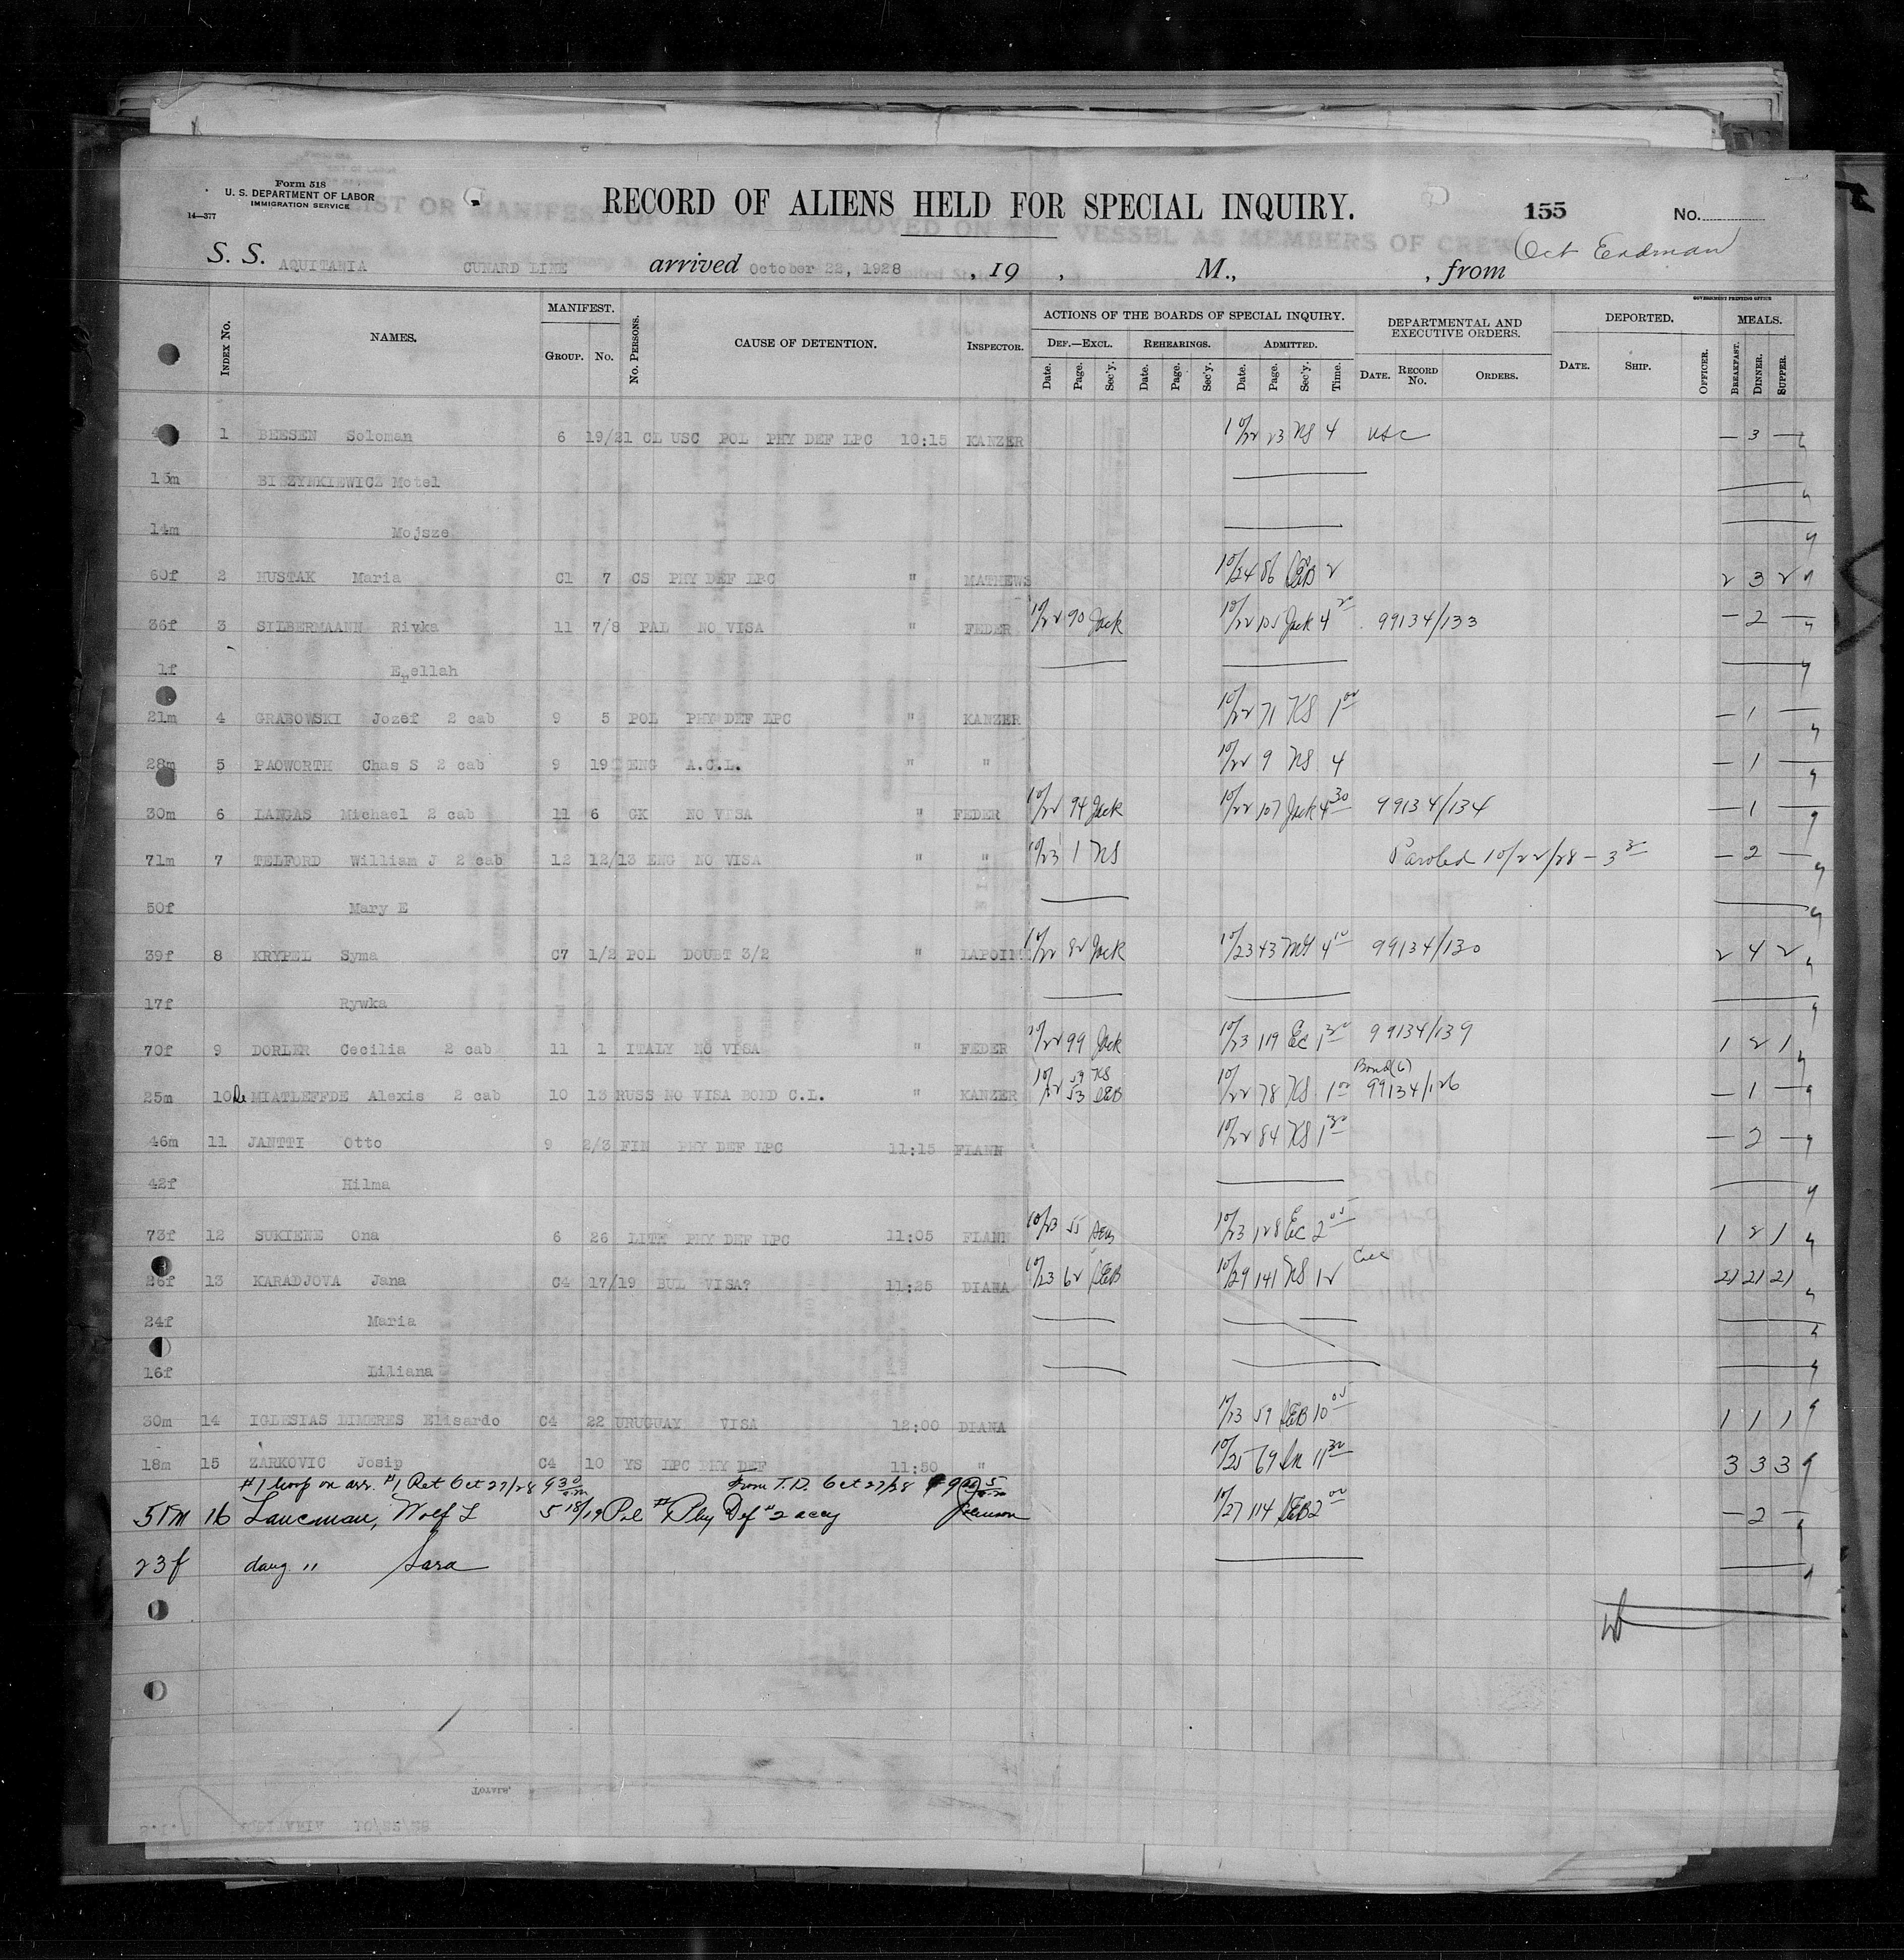 Form 518
U. S. DEPARTMENT OF LABOR
IMMIGRATION SERVICE
14—377
RECORD OF ALIENS HELD FOR SPECIAL INQUIRY.
155
No.
S. S. AQUITANIA CUNARD LINE arrived October 22, 1928, 19 , M., , from
Oct Erdman
GOVERNMENT PRINTING OFFICE
INDEX No. NAMES. MANIFEST. GROUP. No. No. PERSONS. CAUSE OF DETENTION. INSPECTOR. ACTIONS OF THE BOARDS OF SPECIAL INQUIRY. DEPARTMENTAL AND EXECUTIVE ORDERS. DEPORTED. MEALS.
DEF.—EXCL. REHEARINGS. ADMITTED.
Date. Page. Sec'y. Date. Page. Sec'y. Date. Page. Sec'y. Time. DATE. RECORD No. ORDERS. DATE. SHIP. OFFICER. BREAKFAST. DINNER. SUPPER.
1 BEESEN Soloman 6 19/21 CL USC POL PHY DEF LPC 10:15 KANZER 10/22 23 NS 4 USC — 3 —
13m BISZYNKIEWICZ Motel
14m Mojsze
60f 2 HUSTAK Maria C1 7 CS PHY DEF LPC " MATHEWS 10/24 86 DEB 2 2 3 2
36f 3 SILBERMAANN Rivka 11 7/8 PAL NO VISA " FEDER 10/22 90 Jack 10/22 105 Jack 4 20 99134/133 — 2 —
1f Epellah
21m 4 GRABOWSKI Jozef 2 cab 9 5 POL PHY DEF LPC " KANZER 10/22 71 KS 1 00 — 1 —
28m 5 PAOWORTH Chas S 2 cab 9 19 ENG A.C.L. " " 10/22 9 NS 4 — 1 —
30m 6 LANGAS Michael 2 cab 11 6 GK NO VISA " FEDER 10/22 94 Jack 10/22 107 Jack 4 30 99134/134 — 1 —
71m 7 TELFORD William J 2 cab 12 12/13 ENG NO VISA " " 10/23 1 NS Paroled 10/22/28 — 3 — 2 —
50f Mary E
39f 8 KRYPEL Syma C7 1/2 POL DOUBT 3/2 " LAPOINT 10/22 82 Jack 10/23 43 4 10 99134/130 2 4 2
17f Rywka
70f 9 DORLER Cecilia 2 cab 11 1 ITALY NO VISA " FEDER 10/22 99 Jack 10/23 119 EC 1 30 99134/139 1 2 1
25m 10 De MIATLEFFDE Alexis 2 cab 10 13 RUSS NO VISA BOND C.L. " KANZER 10/22 59 KS 53 DEB 10/22 78 KS 1 00 Bond (6) 99134/126 — 1 —
46m 11 JANTTI Otto 9 2/3 FIN PHY DEF LPC 11:15 FLANN 10/22 84 KS 1 30 — 2 —
42f Hilma
73f 12 SUKIENE Ona 6 26 LITH PHY DEF LPC 11:05 FLANN 10/23 55 10/23 128 EC 2 05 1 2 1
26f 13 KARADJOVA Jana C4 17/19 BUL VISA? 11:25 DIANA 10/23 62 DEB 10/29 141 KS 12 21 21 21
24f Maria
16f Liliana
30m 14 IGLESIAS DIMERES Elisardo C4 22 URUGUAY VISA 12:00 DIANA 10/23 59 DEB 10 05 1 1 1
18m 15 ZARKOVIC Josip C4 10 YS LPC PHY DEF 11:50 " 10/25 69 11 30 3 3 3
#1 hosp on arr. #1 Ret Oct 27/28 9 30 a.m. From T.D. Oct 27/28
51m 16 Lancman, Wolf L 5 18/19 Pol "Phy Def" 2 accy Johnson 10/27 114 DEB 2 00 — 2 —
23f daug " Sara